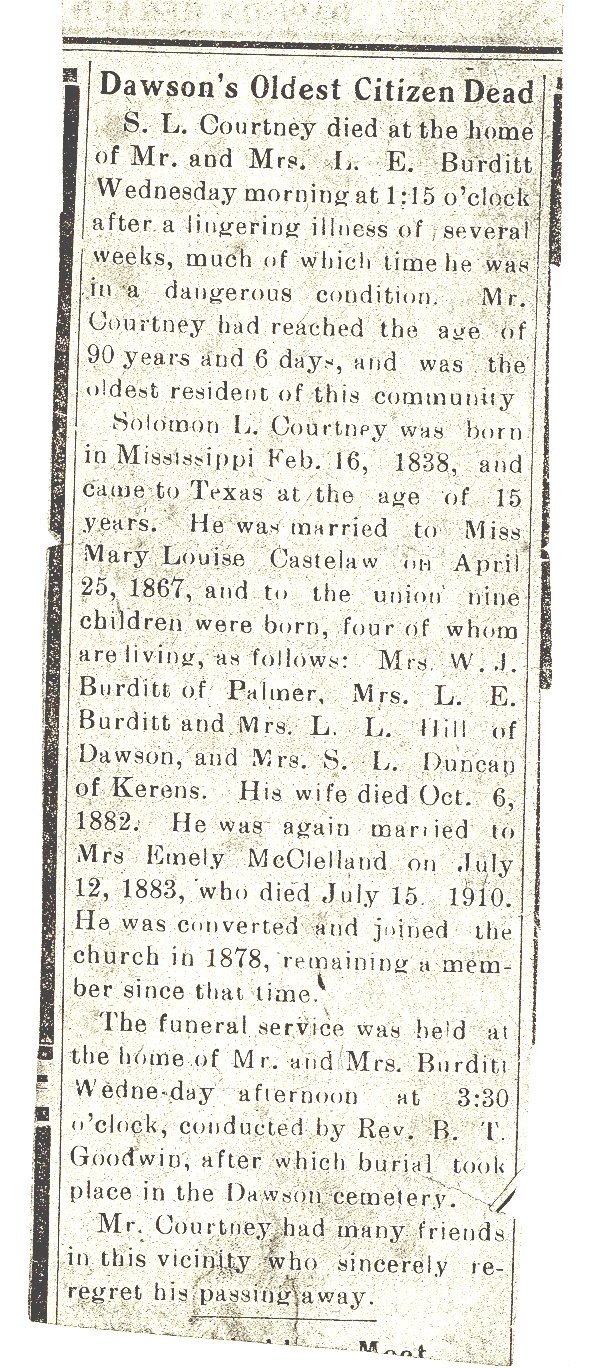 Dawson's Oldest Citizen Dead
S. L. Courtney died at the home
of Mr. and Mrs. L. E. Burditt
Wednesday morning at 1:15 o'clock
after a lingering illness of several
weeks, much of which time he was
in a dangerous condition. Mr.
Courtney had reached the age of
90 years and 6 days, and was the
oldest resident of this community
Solomon L. Courtney was born
in Mississippi Feb. 16, 1838, and
came to Texas at the age of 15
years. He was married to Miss
Mary Louise Castelaw on April
25, 1867, and to the union nine
children were born, four of whom
are living, as follows: Mrs. W. J.
Burditt of Palmer, Mrs. L. E.
Burditt and Mrs. L. L. Hill of
Dawson, and Mrs. S. L. Duncan
of Kerens. His wife died Oct. 6,
1882. He was again married to
Mrs Emely McClelland on July
12, 1883, who died July 15. 1910.
He was converted and joined the
church in 1878, remaining a mem-
ber since that time.
The funeral service was held at
the home of Mr. and Mrs. Burditt
Wednesday afternoon at 3:30
o'clock, conducted by Rev. B. T.
Goodwin, after which burial took
place in the Dawson cemetery.
Mr. Courtney had many friends
in this vicinity who sincerely re-
regret his passing away.